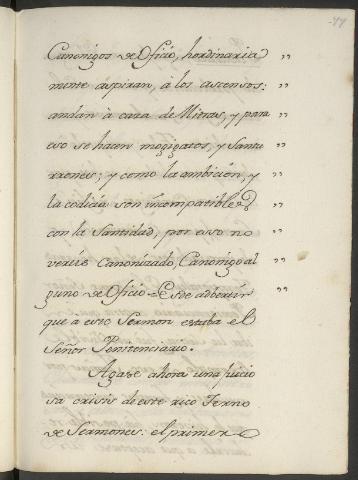 77
Canonigos de Oficio, hordinaria „
mente aspiran, à los ascensos: „
andan à caza de Mitras, y para „
eso se hacen mogigatos, y Santu „
rrones; y como la ambicion, y „
la codicia son incompatibles „
con la Santidad, por eso no „
vereis Canonizado, Canonigo al „
guno de Oficio. Es de adbertir „
que a este Sermon estaba el
Señor Penitenciario.
Agase ahora una juicio
sa crisis de este rico Terno
de Sermones: el primer